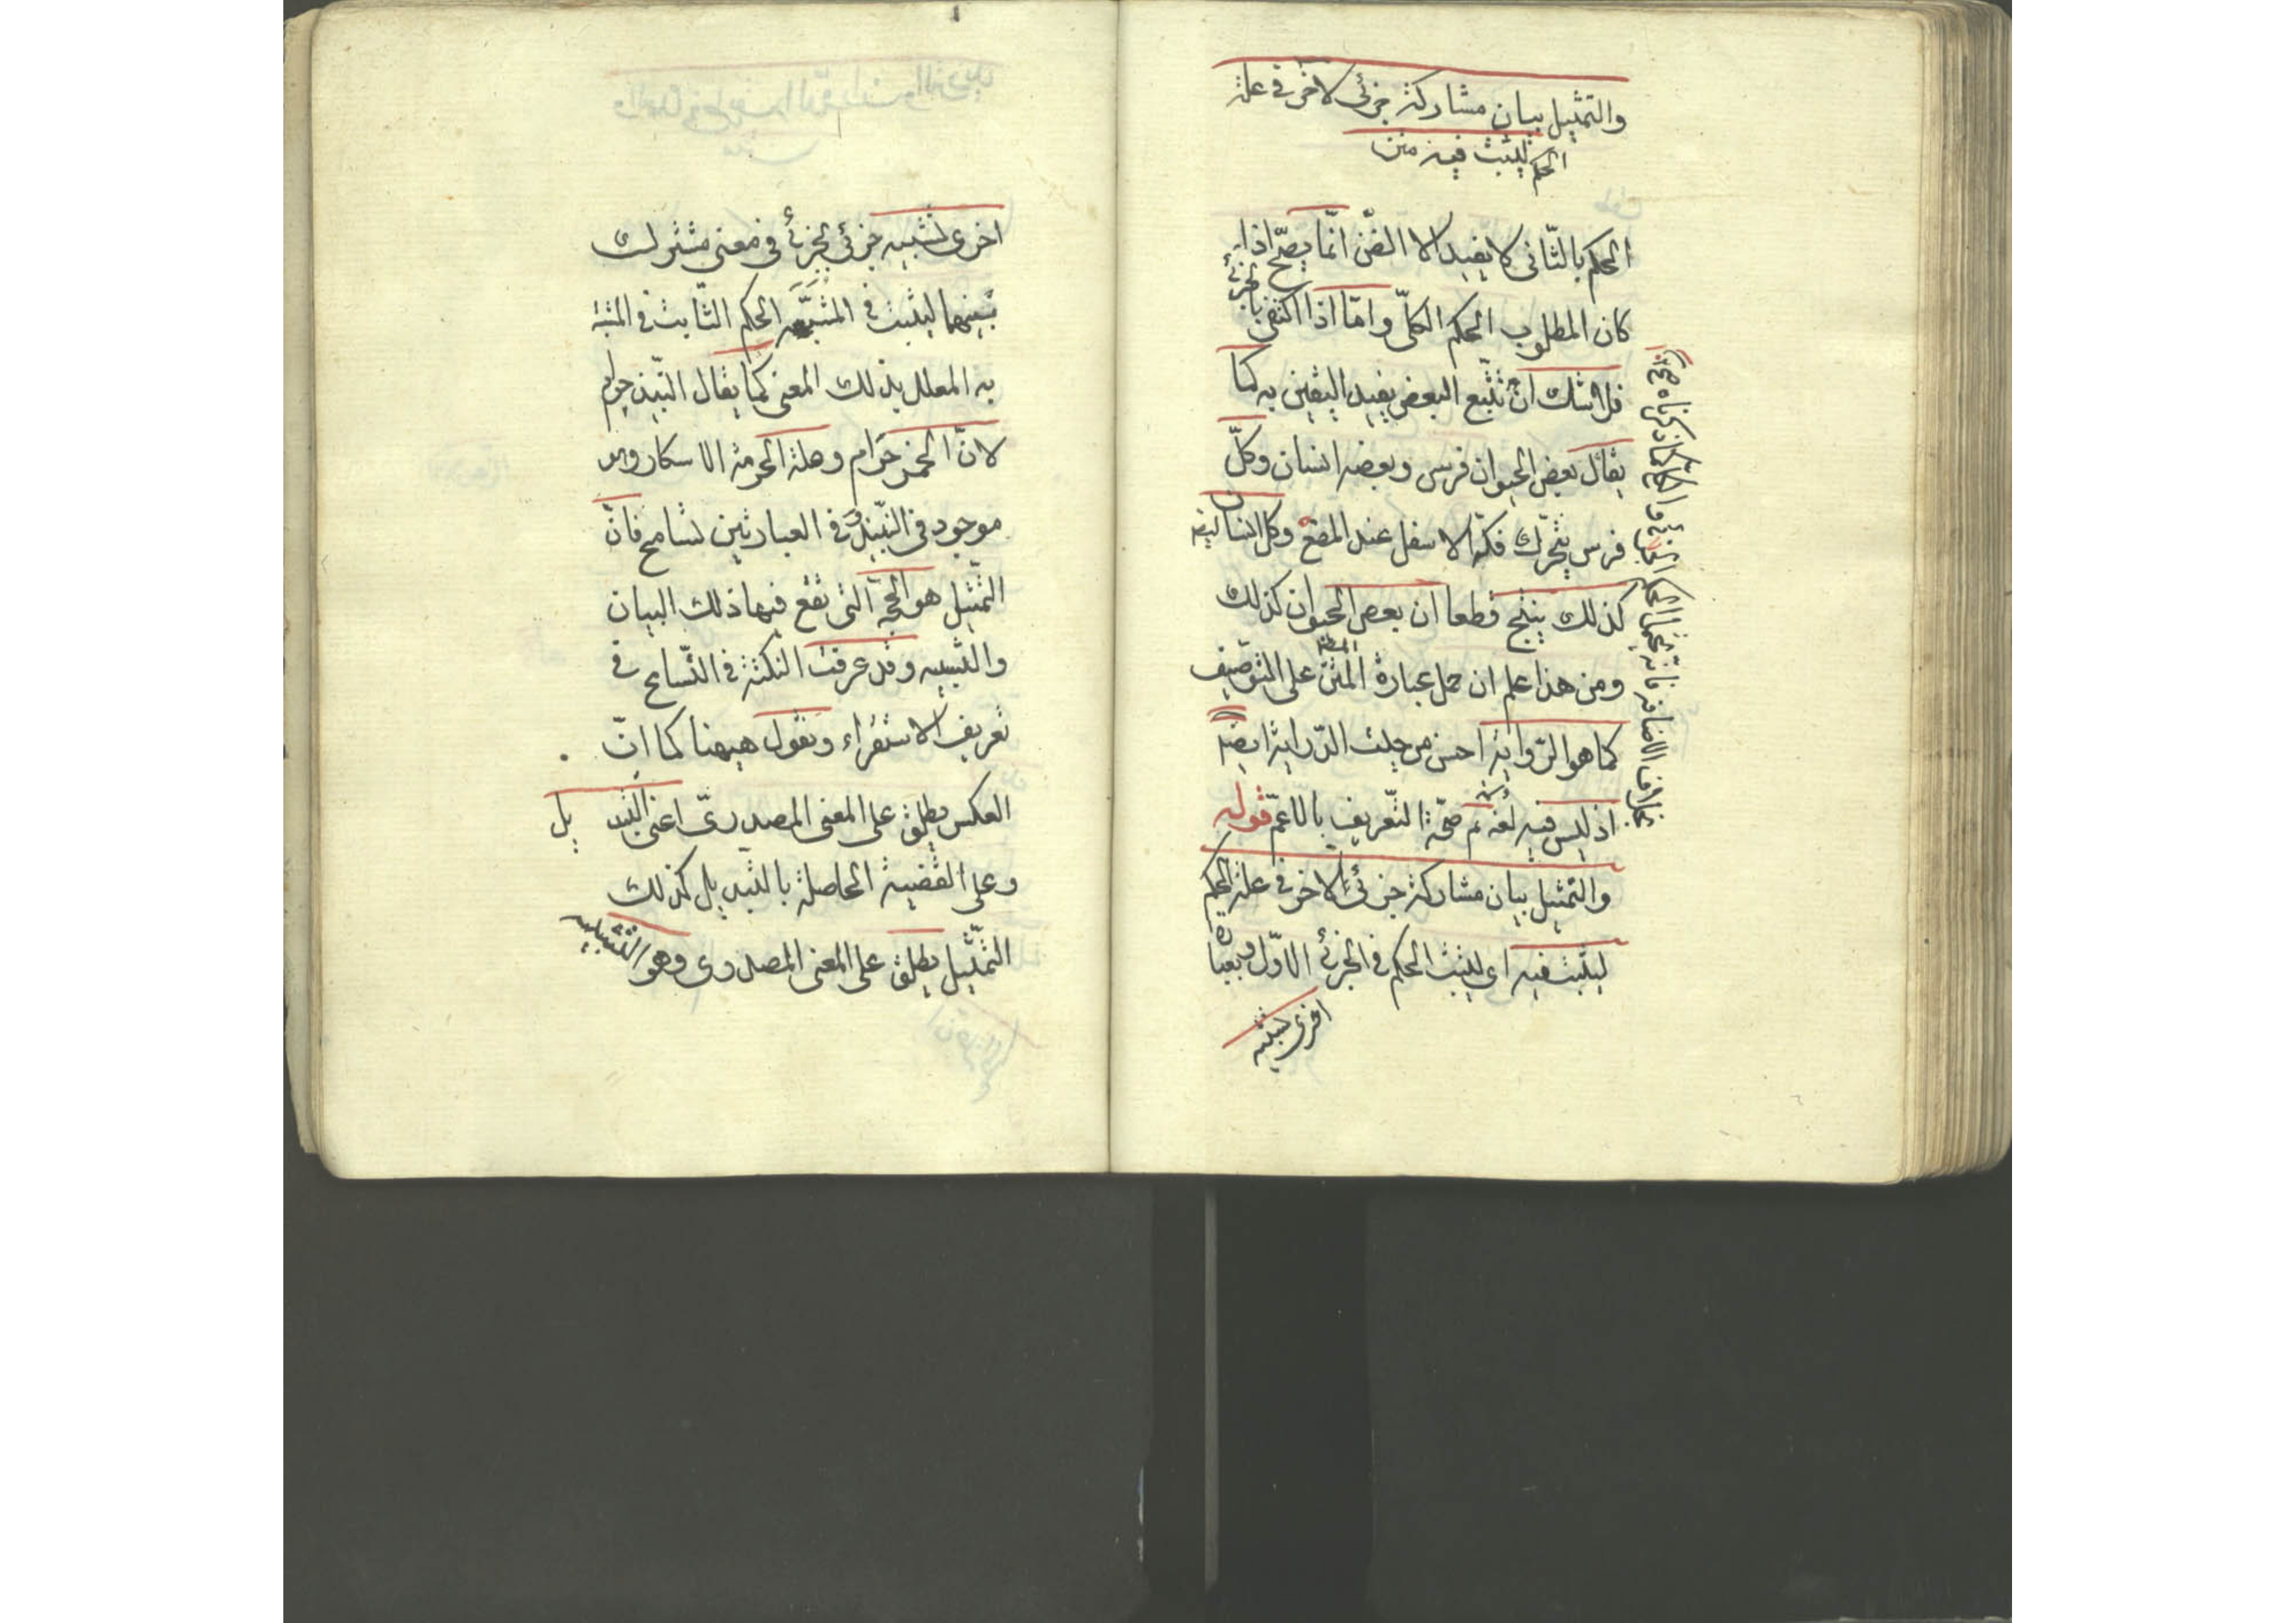 والتمثيل بيان مشاركة جزئى لاخر فى علة
الحكم ليثبت فيه متن
الحكم بالثّانى لا يفيد الا الظن انّما يصحّ اذا
كان المطلوب الحكم الكلّى وامّا اذا اكتفى بالجزئى
فلا شك انّ تتبّع البعض يفيد اليقين به كما
يقال بعض الحيوان فرس وبعضه انسان وكلّ
فرس يتحرّك فكّه الاسفل عند المضغ وكل انسان ايضا
كذلك ينتج قطعا ان بعض الحيوان كذلك
ومن هذا علم ان حمل عبارة المتن على التوصيف
كما هو الرّواية احسن من حيث الدّراية ايضا
اذ ليس فيه توهم صحّة التّعريف بالاعمّ قوله
والتمثيل بيان مشاركة جزئى لاخر فى علة الحكم
ليثبت فيه اى ليثبت الحكم فى الجزئى الاوّل وبعبارة
اخرى تشبيه
بخلاف الاضافة فانه
اخرى تشبيه جزئى بجزئى فى معنى مشترك
بينهما ليثبت فى المشبّه الحكم الثّابت فى المشبه
به المعلل بذلك المعنى كما يقال النّبيذ حرام
لانّ الخمر حرام وعلة الحرمة الاسكار وهو
موجود فى النّبيذ وفى العبارتين تسامح فانّ
التّمثيل هو الحجّة الّتى تقع فيها ذلك البيان
والتشبيه وقد عرفت النكتة فى التّسامح فى
تعريف الاستقراء ونقول هيهنا كما انّ
العكس يطلق على المعنى المصدرىّ اعنى التبديل
وعلى القضية الحاصلة بالتبديل كذلك
التّمثيل يطلق على المعنى المصدرى وهو التشبيه